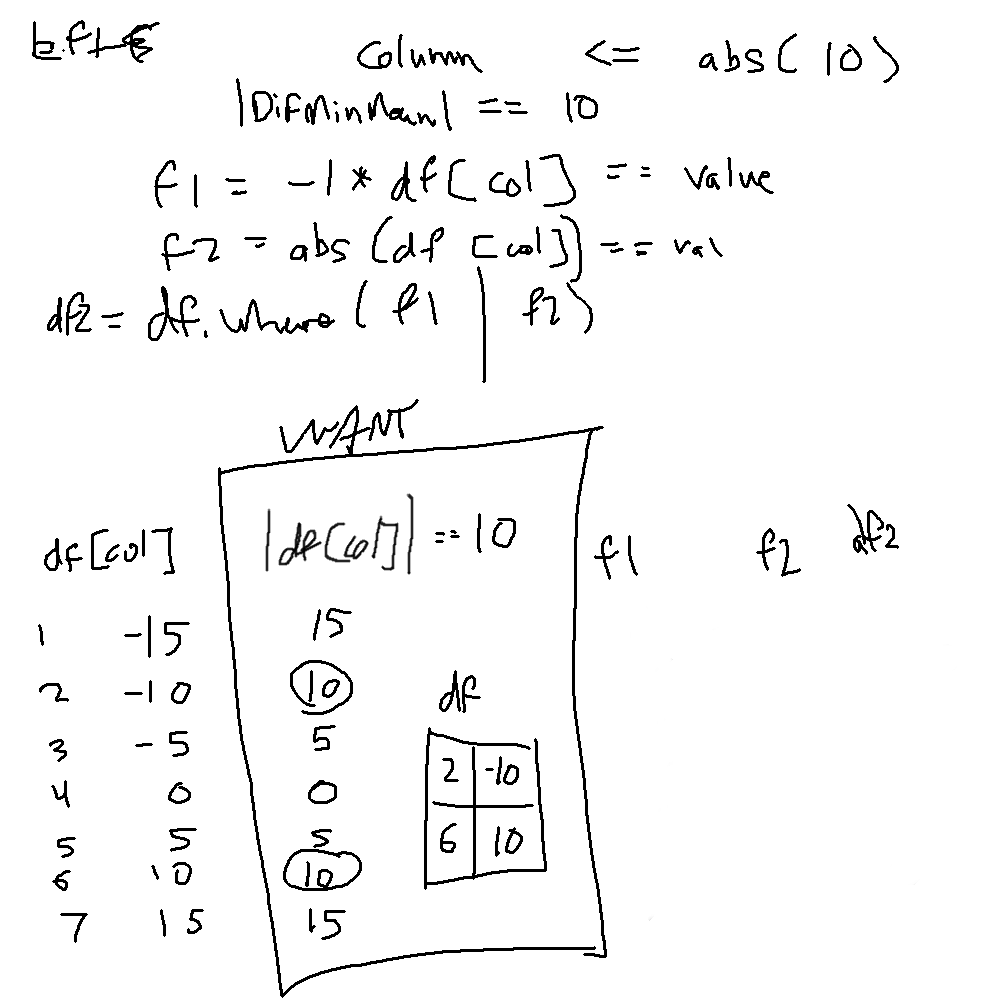 Column <= abs( 10 )
|DifMinMean| == 10
f1 = -1 * df[col] == value
f2 = abs (df [col]) == val
df2 = df.where ( f1 | f2 )
WANT
df[col] |df[col]| == 10 f1 f2 df2
1 -15 15
2 -10 10 df
3 -5 5 2 -10
4 0 0
5 5 5 6 10
6 10 10
7 15 15